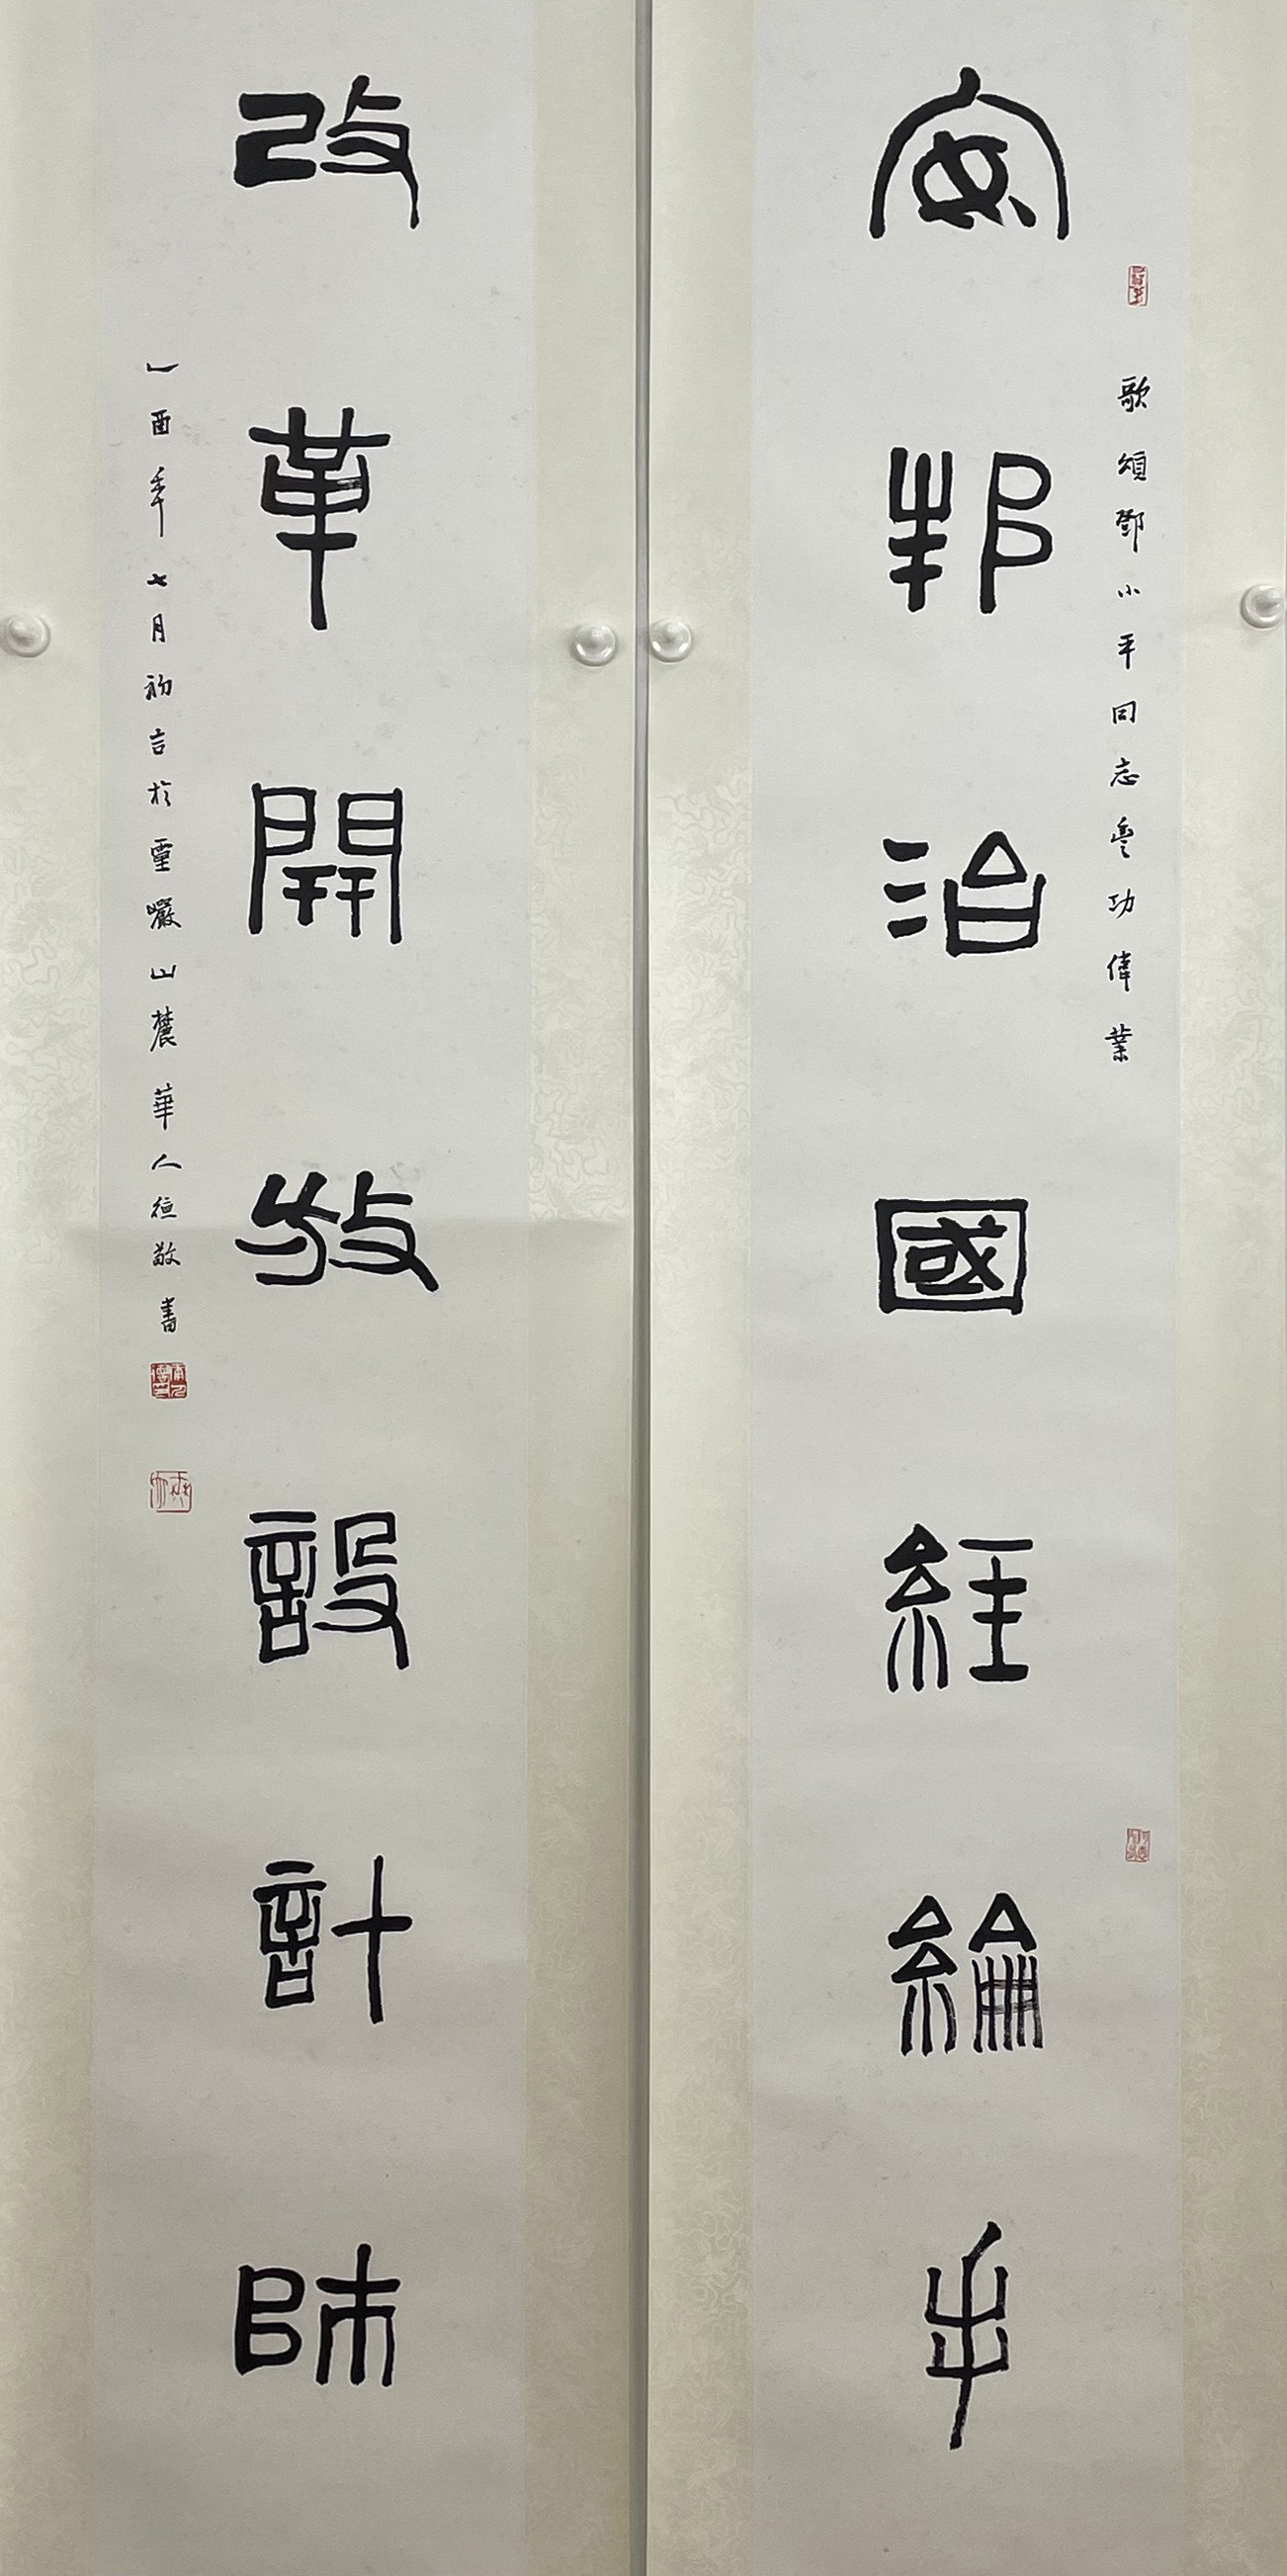 安邦治國經綸手
歌頌鄧小平同志豐功偉業
改革開放設計師
乙酉年七月初吉於靈巖山麓華人德敬書